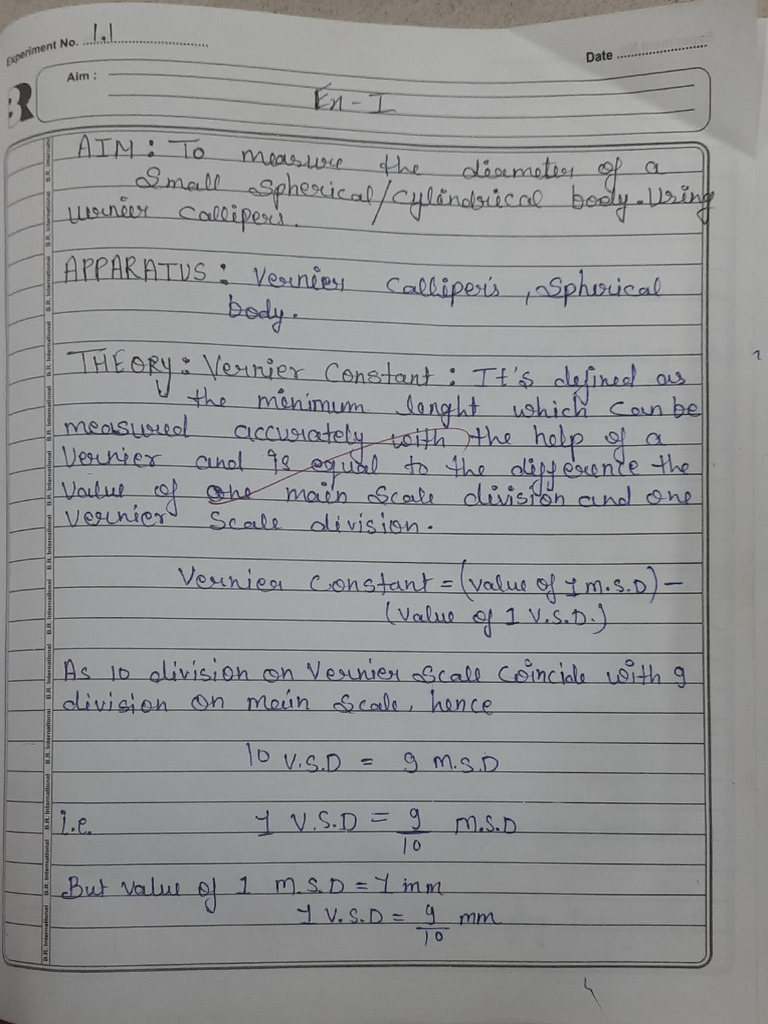 Experiment No. 1.1
Date
Aim :
Ex - I
AIM : To measure the diameter of a
Small Spherical/Cylindrical body. Using
vernier Callipers.
APPARATUS : Vernier Calliper's , Spherical
body.
THEORY : Vernier Constant : It's defined as
the minimum lenght which can be
measured accurately with the help of a
Vernier and is equal to the difference the
value of one main scale division and one
vernier Scale division.
Vernier Constant = (value of 1 M.S.D) -
(value of 1 V.S.D.)
As 10 division on Vernier Scale Coincide with 9
division on main Scale, hence
10 V.S.D = 9 M.S.D
i.e. 1 V.S.D = 9/10 M.S.D
But value of 1 M.S.D = 1 mm
1 V.S.D = 9/10 mm
B.R. International